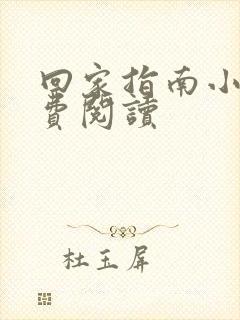 回家指南小
費閱讀
杜玉屏